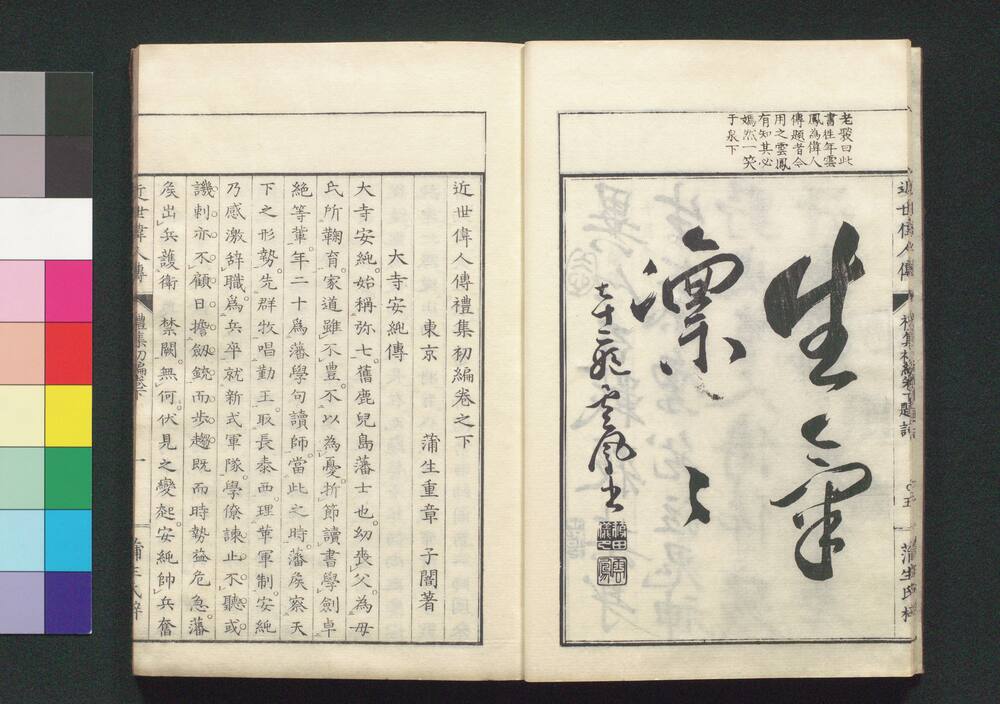 老髮曰此
書往年雲
鳳為偉人
傳題昔今
用之雲鳳
有知其必
嫣然一笑
于泉下
生氣
凜〻
七十二齡雲鳳書
近世偉人傳
蒲生氏
近世偉人傳禮集初編卷之下
東京 蒲生重章 子闇著
大寺安純傳
大寺安純。始稱弥七。舊鹿兒島藩士也。幼喪父。為母
氏所鞠育。家道雖不豊。不以為憂。折節讀書學劍卓
絶等輩。年二十爲藩學句讀師。當此之時。藩矦察天
下之形勢。先群牧唱勤王。取長泰西。理葦軍制。安純
乃感激辞職。爲兵卒就新式軍隊。學僚諫止。不聽。或
譏刺亦不顧。日擔劔銃而歩趨。既而時勢益危急。藩
矦出兵護衛 禁闕。無何伏見之變起。安純帥兵奮
近世偉人傳
禮集初編卷下
一